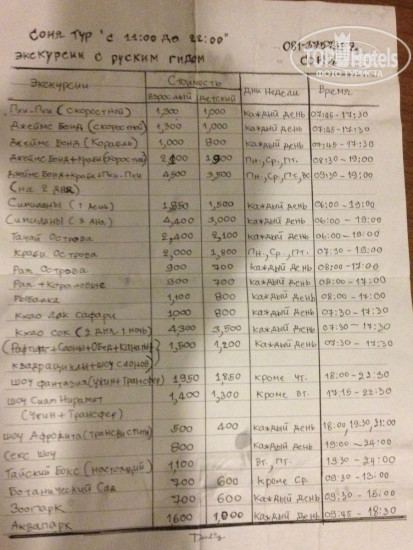 Соня Тур "с 11:00 до 22:00"
Экскурсии с руским гидом
TopHotels
Экскурсии Стоимость Дни недели Время
взрослый детский
Пхи-Пхи (скоростной) 1,300 1,000 каждый день 07:45-17:30
Джеймс Бонд (скоростной) 1,300 1,000 каждый день 07:45-17:30
Джеймс Бонд (корабль) 1,000 800 каждый день 07:45-17:30
Джеймс Бонд+Краби 2,100 1,900 Пн.,Ср.,Пт. 08:30-19:00
Джеймс Бонд+Краби+Пхи-Пхи 4,500 3,500 Пн.,Ср.,Пт. 09:30-19:00
(на 2 дня)
Симиланы (1 день) 1,850 1,500 каждый день 06:00-19:00
Симиланы (2 дня) 4,400 3,000 каждый день 06:00-19:00
Тачай Острова 2,400 2,100 каждый день 06:00-19:00
Краби Острова 2,000 1,800 Пн.,Ср.,Пт. 07:30-19:00
Рая Острова 900 700 каждый день 08:00-17:00
Рая+Коралловые 900 700 каждый день 08:00-17:00
Рыбалка 1,100 800 каждый день 08:00-17:00
Кхао Лак сафари 1000 800 каждый день 07:30-17:30
Кхао Сок (2 дня-1 ночь) 4,300 3,500 каждый день 07:30-17:30
(Рафтинг+Слоны+Обед+ 1,500 1,200 каждый день 07:30-17:30
квадрациклы+шоу слонов)
Шоу Фантазия (ужин+Трансфер) 1,950 1,850 кроме Чт. 18:00-23:30
Шоу Сиам Нирамит 1,400 1,300 кроме Вт. 17:15-22:30
(Ужин+Трансфер)
шоу Афродита 500 400 каждый день 18:00, 19:30, 21:00
Секс Шоу 800 каждый день 19:00-24:00
Тайский Бокс (настоящий) 1,100 Вт., Пт. 19:30-24:00
Ботанический Сад 700 600 Кроме Ср. 09:30-13:00
Зоопарк 700 600 Каждый День 09:30-15:00
Аквапарк 1600 1,000 Каждый День 09:45-18:30